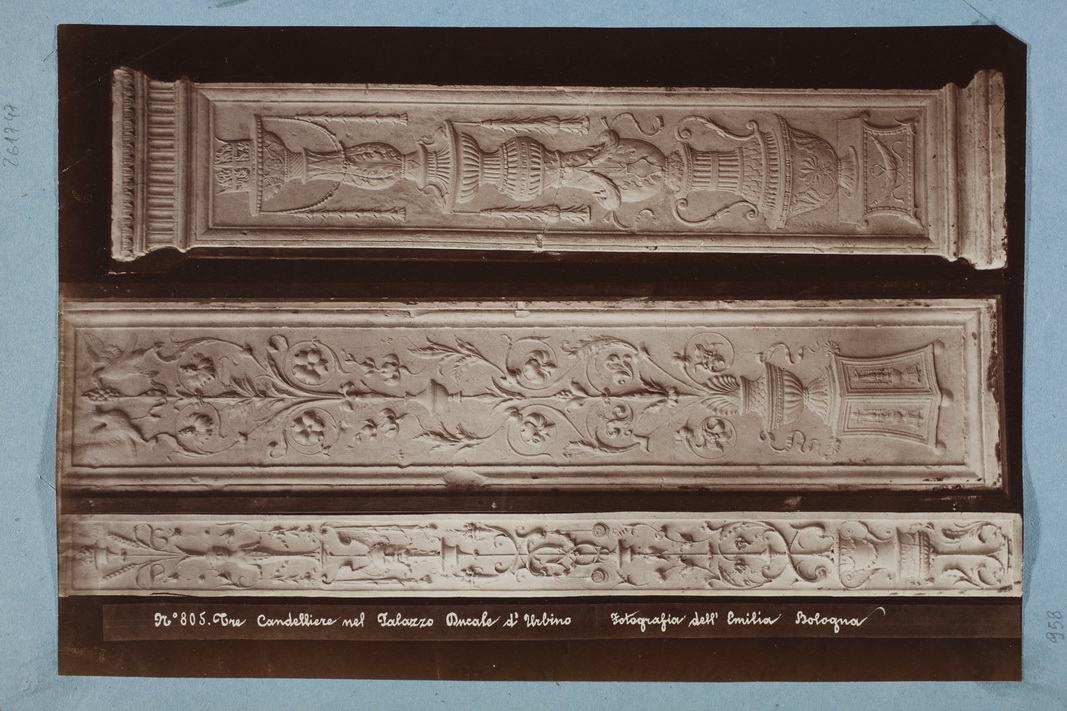 N° 805. Tre Candelliere nel Palazzo Ducale d' Urbino Fotografia dell' Emilia Bologna
958